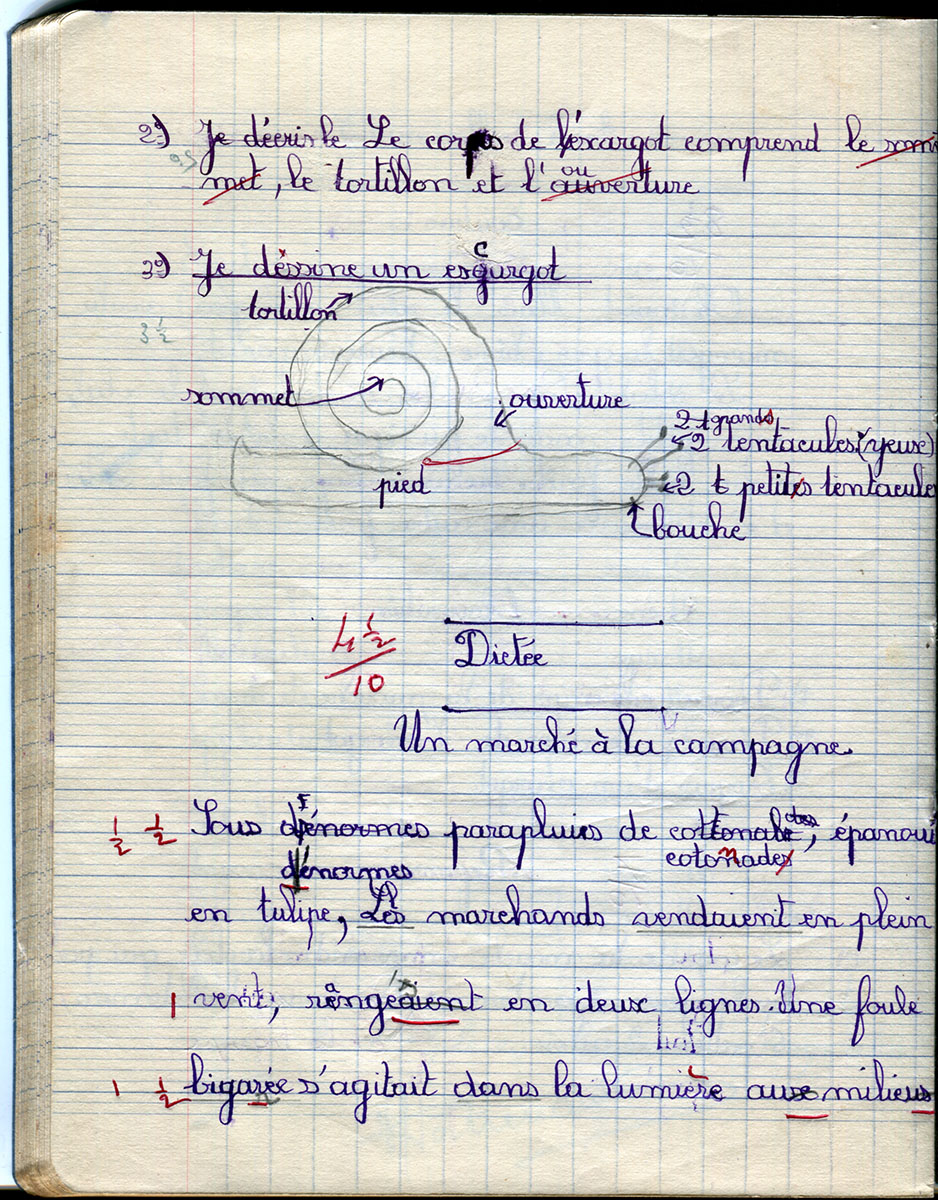 2º) Je décris le Le corps de l'éscargot comprend le som
0,5
met, le tortillon et l'auuverture
ou
3º) Je déssine un esgurgot
c
tortillon
3 ½
sommet
ouverture
2 t grands
2 tentacules (yeux)
pied
2 t petites tentacule
bouche
4 ½
10
Dictée
Un marché à la campagne
½ ½ Sous d'énormes parapluies de cottonales, épanoui
d'énormes cotonades
en tulipe, Les marchands vendaient en plein
1 vent, rangeaient en deux lignes. Une foule
1 ½ bigarée s'agitait dans la lumière aux milieux